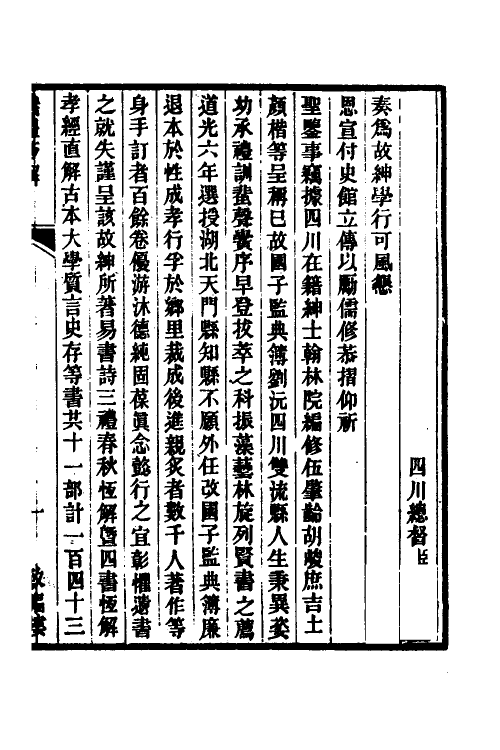 四川總督臣
奏爲故紳學行可風懇
恩宣付史館立傳以勵儒修恭摺仰祈
聖鑒事竊據四川在籍紳士翰林院編修伍肇齡胡峻庶吉士
顏楷等呈稱已故國子監典簿劉沅四川雙流縣人生秉異姿
幼承禮訓蜚聲黌序早登拔萃之科振藻藝林旋列賢書之薦
道光六年選授湖北天門縣知縣不願外任改國子監典簿廉
退本於性成孝行孚於鄉里裁成後進親炙者數千人著作等
身手訂者百餘卷優游沐德純固葆眞念懿行之宜彰懼遺書
之就失謹呈該故紳所著易書詩三禮春秋恆解曁四書恆解
孝經直解古本大學質言史存等書共十一部計一百四十三